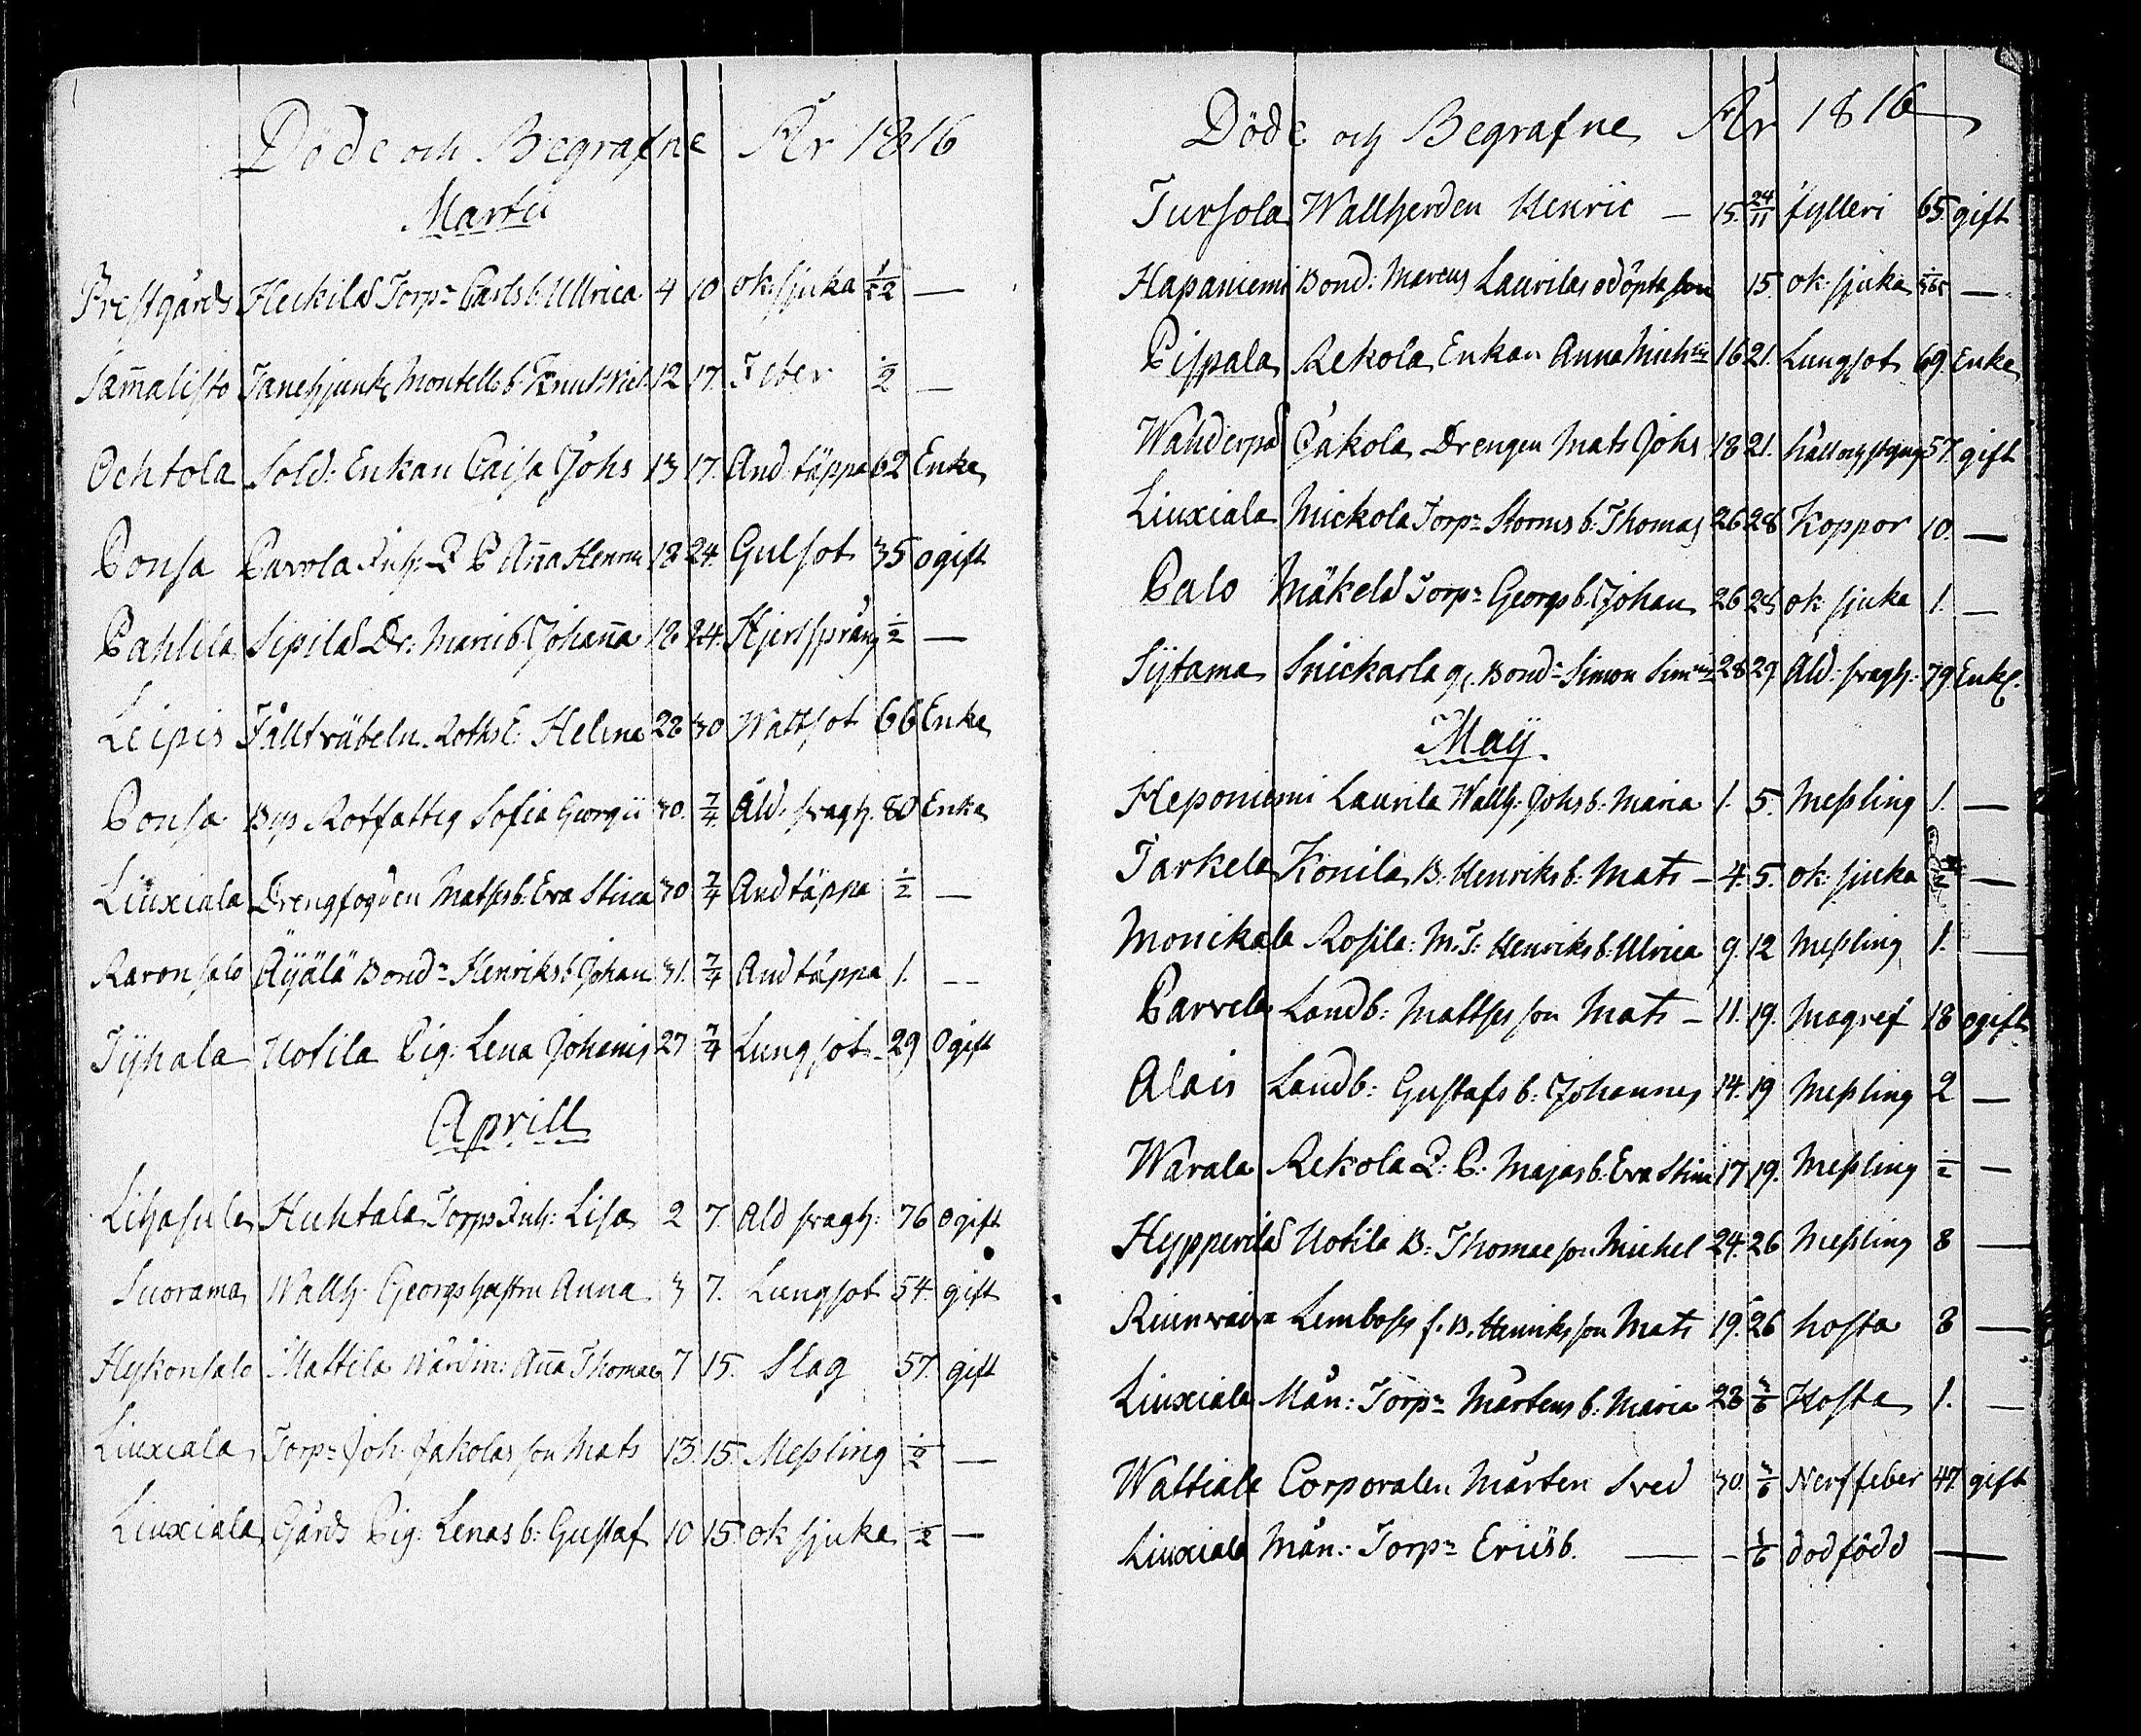 Döde och Begrafne År 1816
Martii
Prestgårds Heikilä Torp: Carls b: Ullrica 4 10 ok: sjuka 1/52 —
Sam̄alisto Fanejunk: Montells b: Knut 12 17. Feber 1/2 —
Ochtola Sold: Enkan Caisa Johs 13 17. And täppa 62 Enka
Ponsa Pavola Inh: Q P An̄a Henrici 18 24. Gulsot 35 ogift
Pahlila Sipilä Dr: Marci b. Johan̄a 18 24. Hjertsprång 1/2 —
Leipis Fältväbeln Roths E: Helena 28 30 Wattsot 66 Enka
Ponsa Bys Rotfattig Sofia Georgii 30. 7/4. Åld: svagh. 80 Enka
Liuxiala Drengfogden Matss b: Eva Stina 30 7/4 Andtäppa 1/2 —
Raronsalo Äijälä Bond: Henriks b: Johan 31. 7/4 Andtäppa 1. —
Tÿhala Uotila Pig: Lena Johanis 27 7/4 Lungsot 29 Ogift
Aprill
Lihasula Huhtala Torps Inh: Lisa 2 7. Åld svagh: 76 Ogift
Suorama Wallh: Georgs hustru Anna 3 7. Lungsot 54. gift
Hykonsalo Mattila Wärdin: An̄a Thomae 7 15. Slag 57. gift
Liuxiala Torp: Joh: Jakolas son Mats 13. 15. Messling 1/2 —
Liuxiala Gårds Pig: Lenas b: Gustaf 10 15. ok sjuka 1/2 —
Döde och Begrafne År 1816
Tursola Wallherden Henric — 15. 24/11 fylleri 65. gift
Hapaniemi Bond: Marcus Laurilas odöpta son 15. ok: sjuka —
Pispala Rekola Enkan Anna Mich: 16 21. Lungsot 69. Enka
Wahderpä Jakola Drengen Mats Johs 18 21. håll och styng 57. gift
Liuxiala Mickola Torp: Storms b: Thomas 26 28 Koppor 10. —
Palo Mäkelä Torp: Georgs b: Johan 26 28 ok sjuka 1. —
Sÿtama Snickarla gl. Bond: Simon Sim: 28 29. Åld: svagh: 79. Enkl.
Maÿ.
Heponiemi Laurila Wallh: Johs b: Maria 1. 5. Messling 1. —
Tarkela Konila B: Henriks b: Mats — 4. 5. ok: sjuka —
Monikala Rosila: M. T: Henriks b: Ulrica 9. 12 Messling 1. —
Parvela Landb: Mattses son Mats — 11. 19. Magref 18 ogift
Alais Landb: Gustafs b: Johannes 14. 19 Messling 2 —
Warala Rekola Q: P: Majas b: Eva Stina 17 19. Messling 1/2 —
Hypperilä Uotila B: Thomae son Michel 24. 26 Messling 8 —
Lemboss f. B. Henriks son Mats 19. 26 hosta 8 —
Liuxiala Mån: Torp: Mårtens b: Maria 28 2/6 Hosta 1. —
Wattiala Corporalen Mårten Sved 30. 2/6 Nerffeber 47. gift
Liuxiala Mån: Torp: Erics b. — — 1/6 dödfödd —